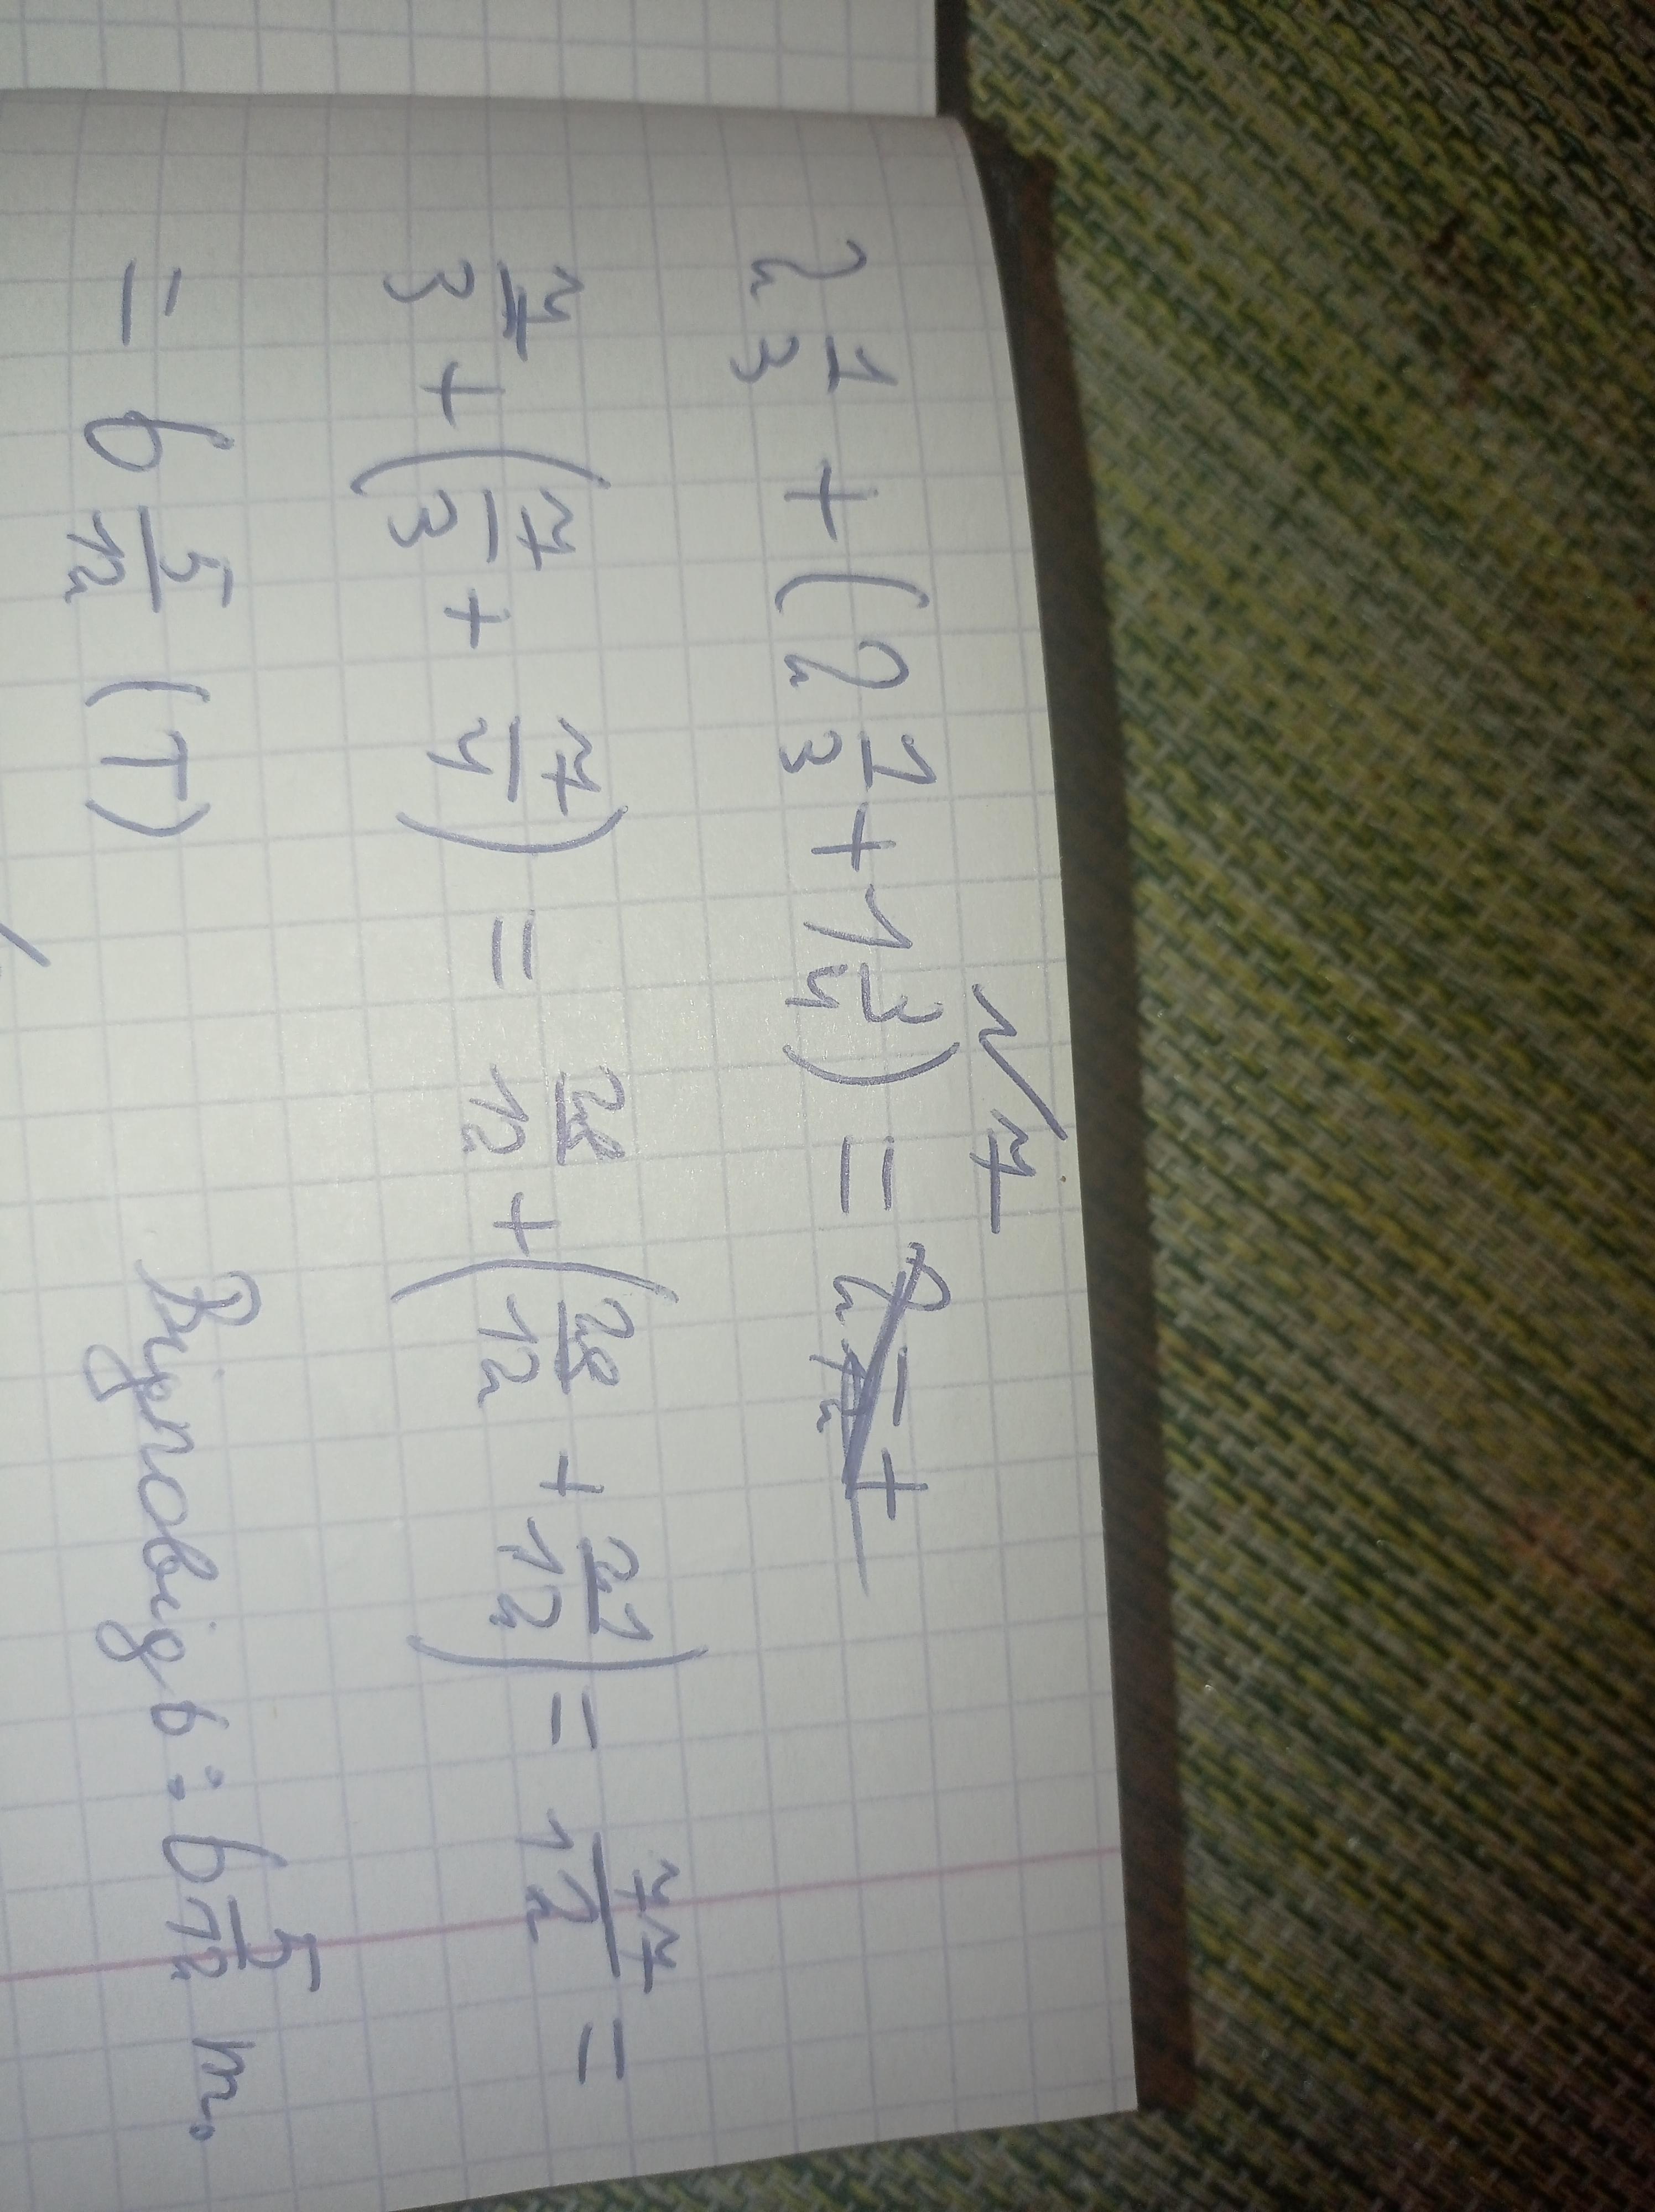 №7
2 1/3 + (2 1/3 + 1 3/4) =
7/3 + (7/3 + 7/4) = 28/12 + (28/12 + 21/12) = 77/12 =
= 6 5/12 (Т) Відповідь: 6 5/12 т.